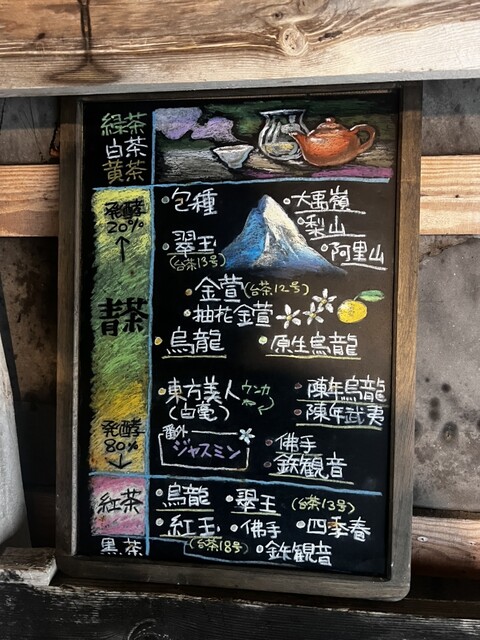 緑茶
白茶
黄茶
発酵
20%
↑
青茶
発酵
80%
↓
・包種
・大禹嶺
・梨山
・阿里山
・翠玉
(台茶13号)
・金萱(台茶12号)
・柚花金萱
・烏龍
・原生烏龍
・東方美人
(白毫)
ウンカ
・陳年烏龍
・陳年武夷
番外
ジャスミン
・佛手
・鉄観音
紅茶
・烏龍
・翠玉
(台茶13号)
・紅玉
(台茶18号)
・佛手
・四季春
・鉄観音
黒茶